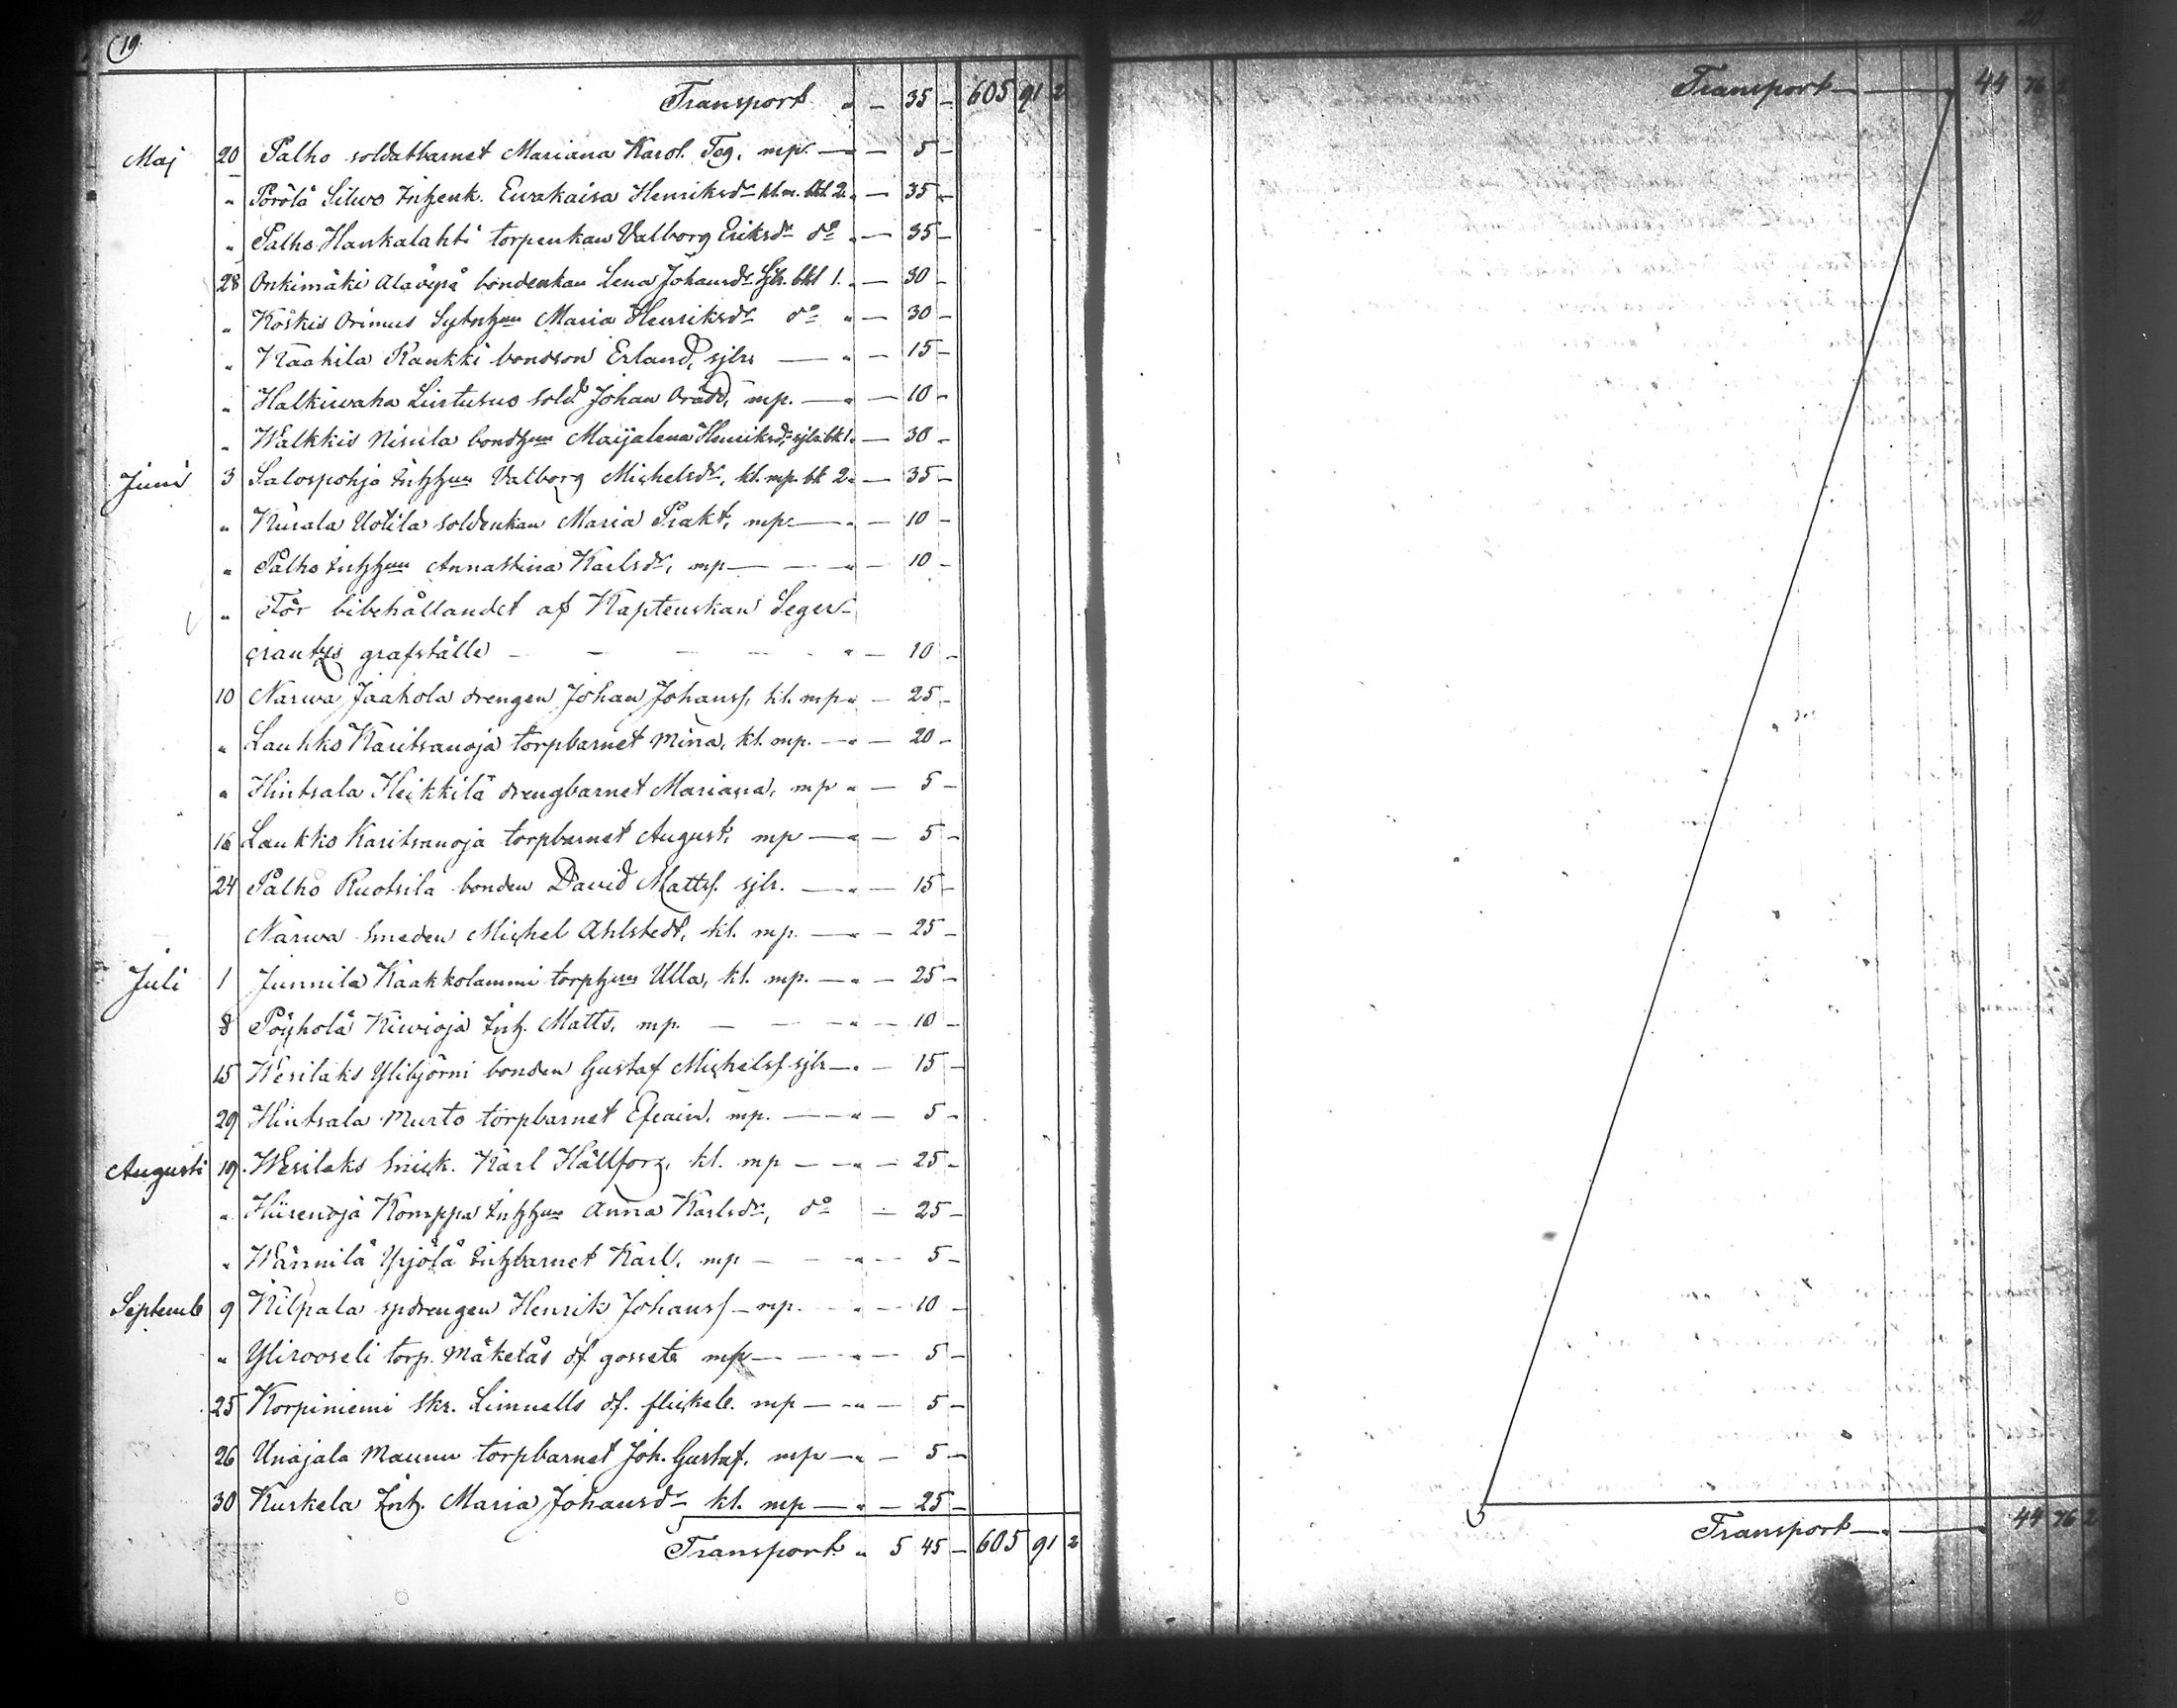 19.
Transport " – 35 – 605 91 2
Maj 20 Palho soldatbarnet Mariana Karol. Teg, mp. – " – 5 –
" Pörölä Silwo Inhenk. Ewakaisa Henriksdr kl. m. bkl. 2. " – 35 –
" Palho Haukalahti torpenkan Valborg Eriksdr do " – 35 –
28 Onkimäki Alawipå bondenkan Lena Johansdr Sjlr. bkl 1. " – 30 –
" Koskis Orimus Maria Henriksdr do " – 30 –
" Kaakila Kaukki bondson Erland, sjlr. – " – 15 –
" Halkiwaha Liuttusus sold. Johan Brådd, mp. – " – 10 –
" Walkkis Nisula bondhun Maijalena Henriksdr, sjlr. bk 1. " – 30 –
Juni 3 Salospohja Inhhun Valborg Michelsdr, kl. mp. bk 2. – 35 –
" Kurala Uotila soldenkan Maria Prakt, mp. – " – 10 –
" Palho Inhhun Annastina Karlsdr, mp – " – 10 –
" För bibehållandet af Kaptenskan Seger-
crantzs grafställe – – – " – 10 –
10 Narwa Jaakola drengen Johan Johanss, kl. mp " – 25 –
" Laukko Karitsanoja torpbarnet Mina, kl. mp. – " – 20 –
" Hintsala Heikkilä drengbarnet Mariana, mp " – 5 –
16 Laukko Karitsanoja torpbarnet August, mp – " – 5 –
24 Palho Ruotsila bonden David Mattss. sjlr. – " – 15 –
Narwa Smeden Michel Ahlstedt, kl. mp. – " – 25 –
Juli 1 Junnila Kaakkolammi torphun Ulla, kl. mp. – " – 25 –
8 Pöyhölä Kiwioja Inh. Matts, mp. – – " – 10 –
15 Wesilaks Ylibjörni bonden Gustaf Michelss sjlr – " – 15 –
29 Hintsala Murto torpbarnet Efraim, mp. – " – 5 –
Augusti 19 Wesilaks Snick. Karl Hällfors, kl. mp – " – 25 –
" Hiirenoja Komppa Inhhun Anna Karlsdr, do – 25 –
" Wännilä Yrjölä Inhbarnet Karl, mp – " – 5 –
Septemb 9 Kilpala spdrengen Henrik Johanss – mp. " – 10 –
" Ylirooseli torp. Mäkeläs df. gossete mp – " – 5 –
25 Korpiniemi Skr. Limnells df. flickeb. mp – " – 5 –
26 Unajala Maunu torpbarnet Joh. Gustaf, mp – " – 5 –
30 Kurkela Inh. Maria Johansdr kl. mp – " – 25 –
Transport. " 5 45 – 605 91 2
Transport – – 44 76 2
Transport – – 44 76 2